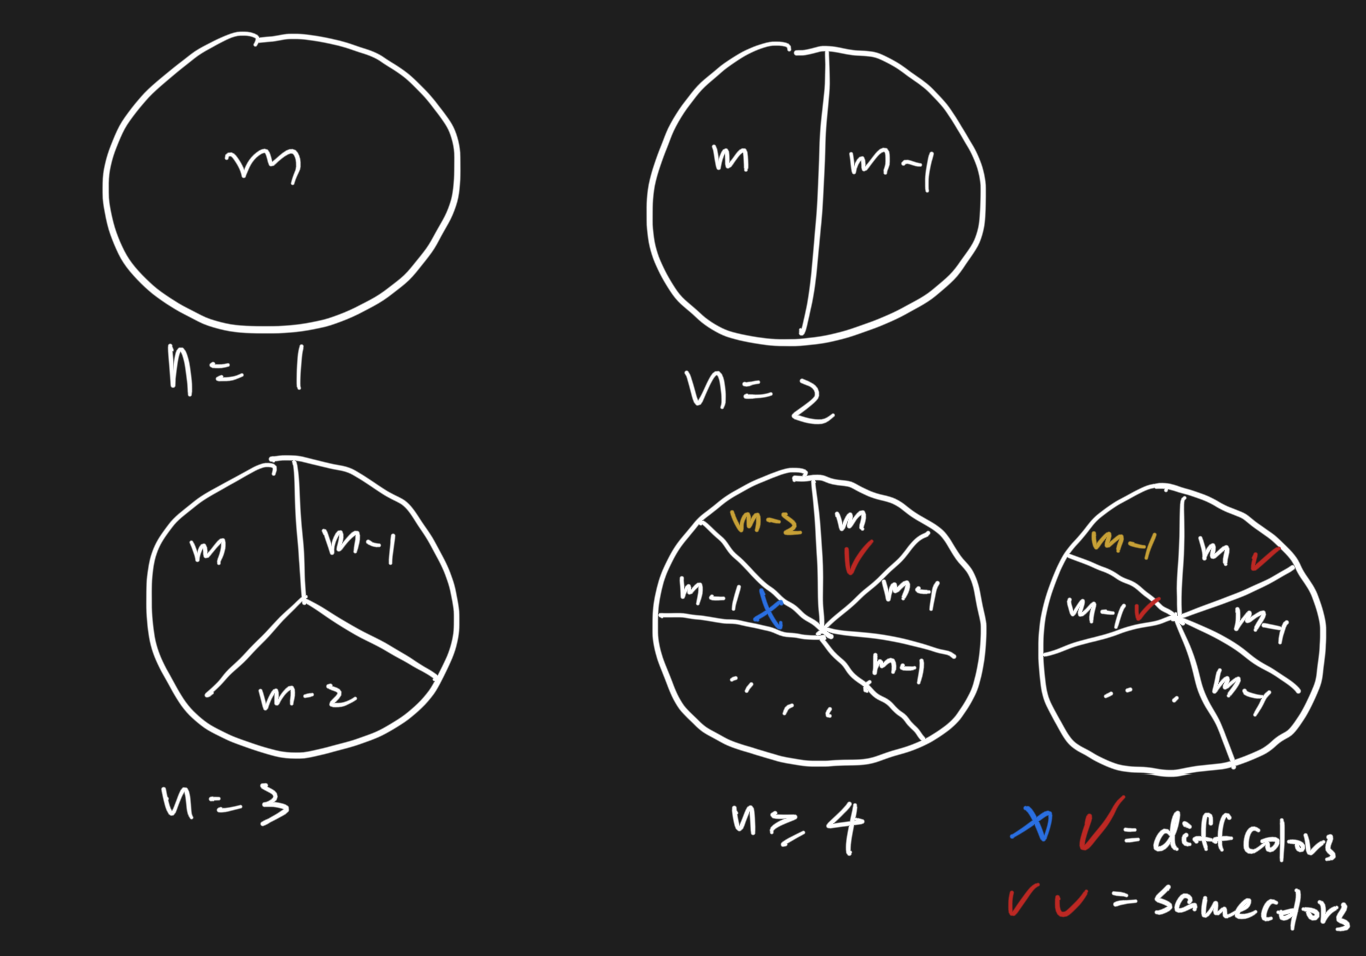 m
n = 1
m
m-1
n = 2
m
m-1
m-2
n = 3
m-2
m
m-1
m-1
m-1
...
n ≥ 4
m-1
m
m-1
m-1
m-1
...
x ✓ = diff colors
✓ ✓ = same colors